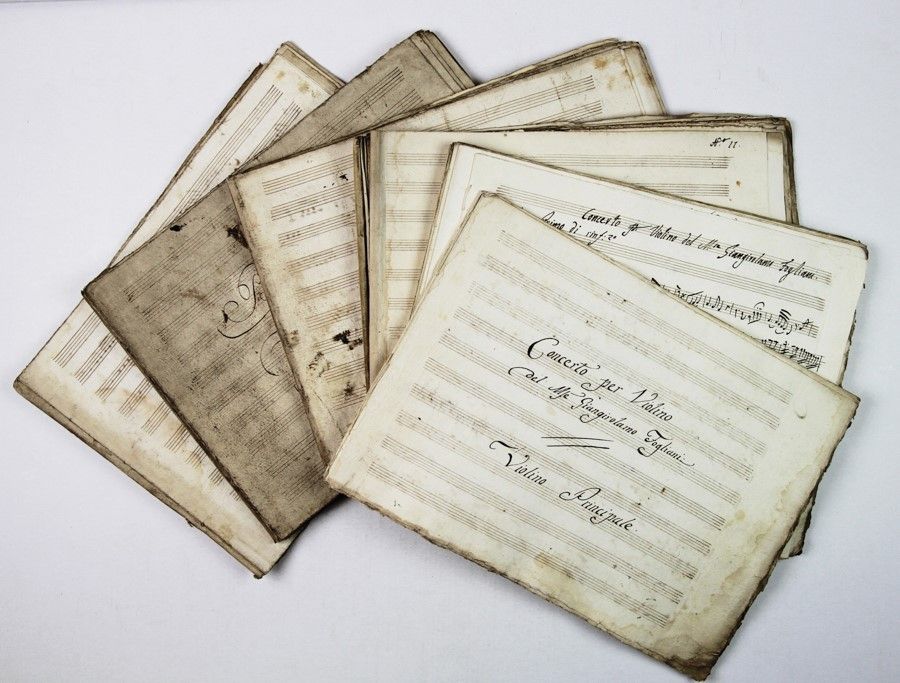 N.º 11.
Concerto per Violino del Mro Giangirolamo Fogliani
Primo di sinf:a
Concerto per Violino
Del Mro Giangirolamo Fogliani
Violino Principale.